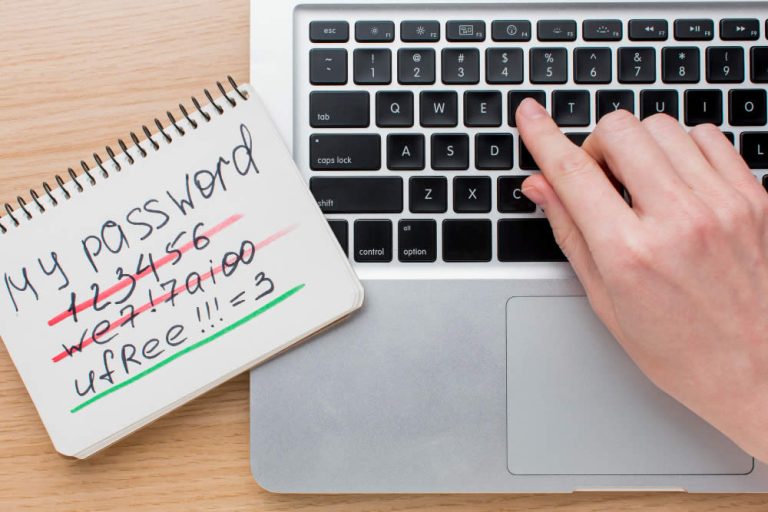 My password
123456
we7!7aioo
ufree!!!=3
esc F1 F2 F3 F4 F5 F6 F7 F8 F9
~ ! @ # $ % ^ & * (
` 1 2 3 4 5 6 7 8 9
tab Q W E T Y U I O
caps lock A S D L
shift Z X C
alt
control option